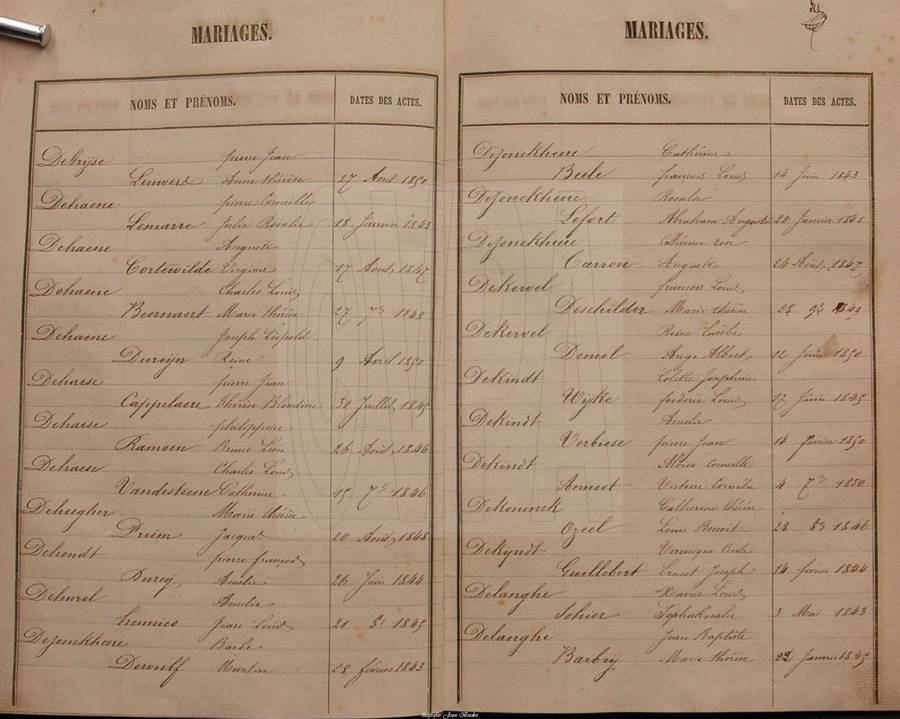 MARIAGES.
NOMS ET PRÉNOMS. DATES DES ACTES.
Debrijse pierre Jean
Leuwers Anne thérèse 27 Aout 1850
Dehaene pierre Corneille
Lemarre Julie Rosalie 18 Janvier 1843
Dehaene Auguste
Cortewilde Virginie 17 Aout 1847
Dehaene Charles Louis
Beernaert Marie thérèse 27 7bre 1848
Dehaene Joseph Léopold
Dureijn Reine 9 Avril 1850
Dehaese pierre Jean
Cappelaere thérèse Blondine 30 Juillet 1845
Dehaese philippine
Ramoen Bruno Léon 26 Août 1846
Dehaese Charles Louis
Vandesteene Catherine 15 7bre 1846
Deheegher Marie thérèse
Priem Jacques 20 Août 1848
Dehondt pierre françois
Durey Amélie 26 Juin 1844
Dehurel Amélie
Jean Louis 21 8bre 1845
Dejonckheere Barbe
Dewulf Martin 28 février 1843
MARIAGES.
NOMS ET PRÉNOMS. DATES DES ACTES.
Dejonckheere Cathérine
Beele françois Louis 14 Juin 1843
Dejonckheere Rosalie
Lefort Abraham Auguste 22 Janvier 1845
Dejonckheere
Carron Auguste 24 Août 1847
Dekervel francois Louis
Deschilder Marie thérèse 28 9bre 1849
Dekervel Reine Eusèbe
Demol Ange Albert 12 Juin 1850
Dekindt Colette Joséphine
Wijkke fréderic Louis 17 Juin 1845
Dekindt Amélie
Verbiese pierre Jean 14 février 1850
Dekindt Moïse corneille
Anneet Victoire Cornélie 4 7bre 1850
Dekoninck Catherine thérèse
Ozeel Louis Benoit 28 8bre 1846
Dekyndt Véronique Cécile
Guillebert Ernest Joseph 14 février 1844
Delanghe Xavier Louis
Sohier Sophie Rosalie 3 Mai 1843
Delanghe Jean Baptiste
Barbry Marie thérèse 22 Janvier 1845